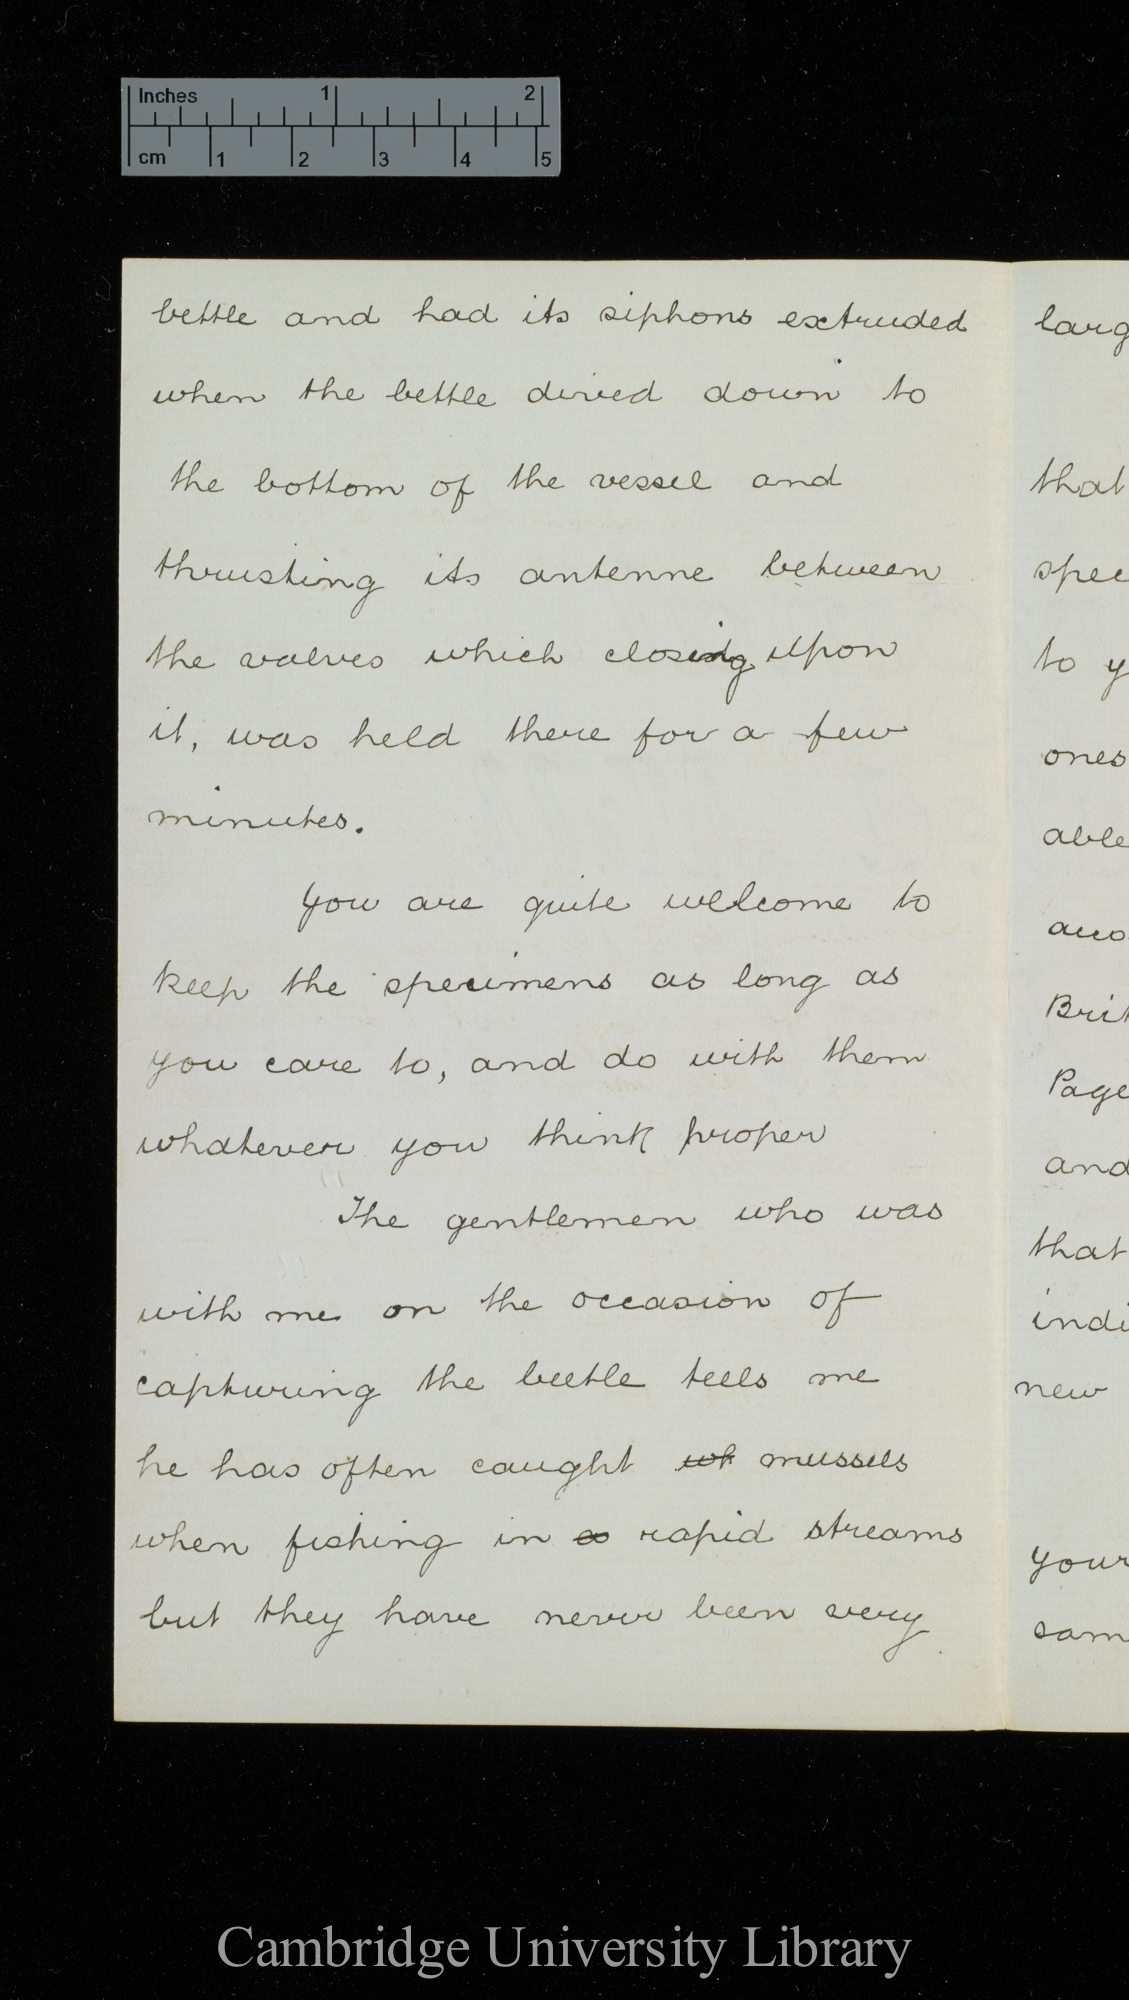 Inches 1 2
cm 1 2 3 4 5
bettle and had its siphons extruded
when the bettle dived down to
the bottom of the vessel and
thrusting its antenne between
the valves which closing upon
it, was held there for a few
minutes.
You are quite welcome to
keep the specimens as long as
you care to, and do with them
whatever you think proper
The gentlemen who was
with me on the occasion of
capturing the beetle tells me
he has often caught wh mussels
when fishing in a rapid streams
but they have never been very
larg
that
spec
to y
ones
able
Brit
Page
and
that
indi
new
your
sam
Cambridge University Library